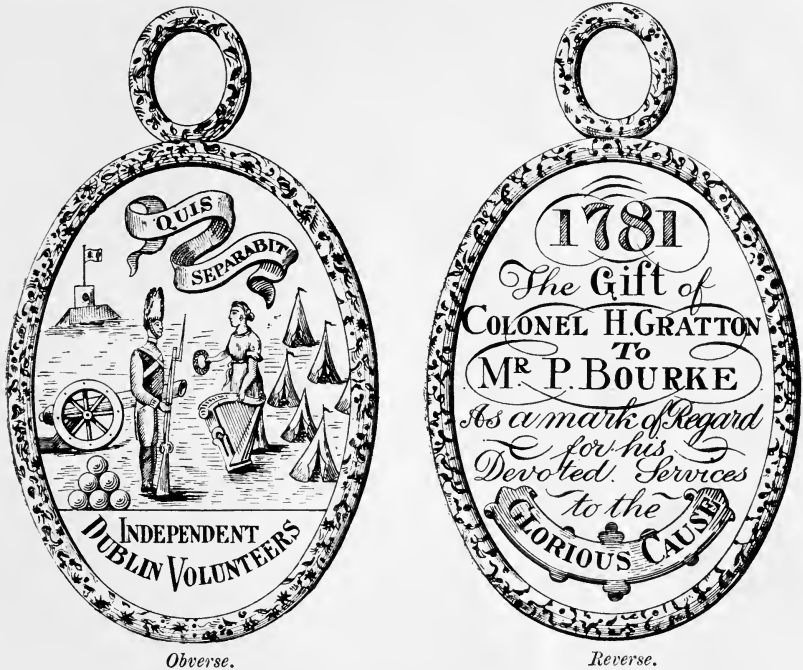 QUIS
SEPARABIT
INDEPENDENT
DUBLIN VOLUNTEERS
Obverse.
1781
The Gift of
COLONEL H. GRATTON
To
MR P. BOURKE
As a mark of Regard
for his
Devoted. Services
to the
GLORIOUS CAUSE
Reverse.